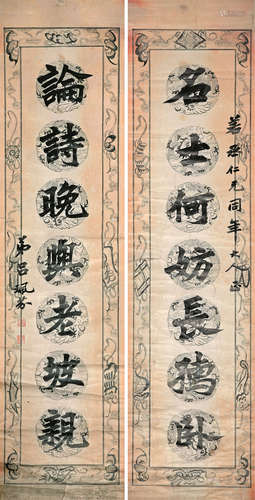 名士何妨長卧
若仁兄同年大人正
論詩晚與老坡親
弟呂珮芬